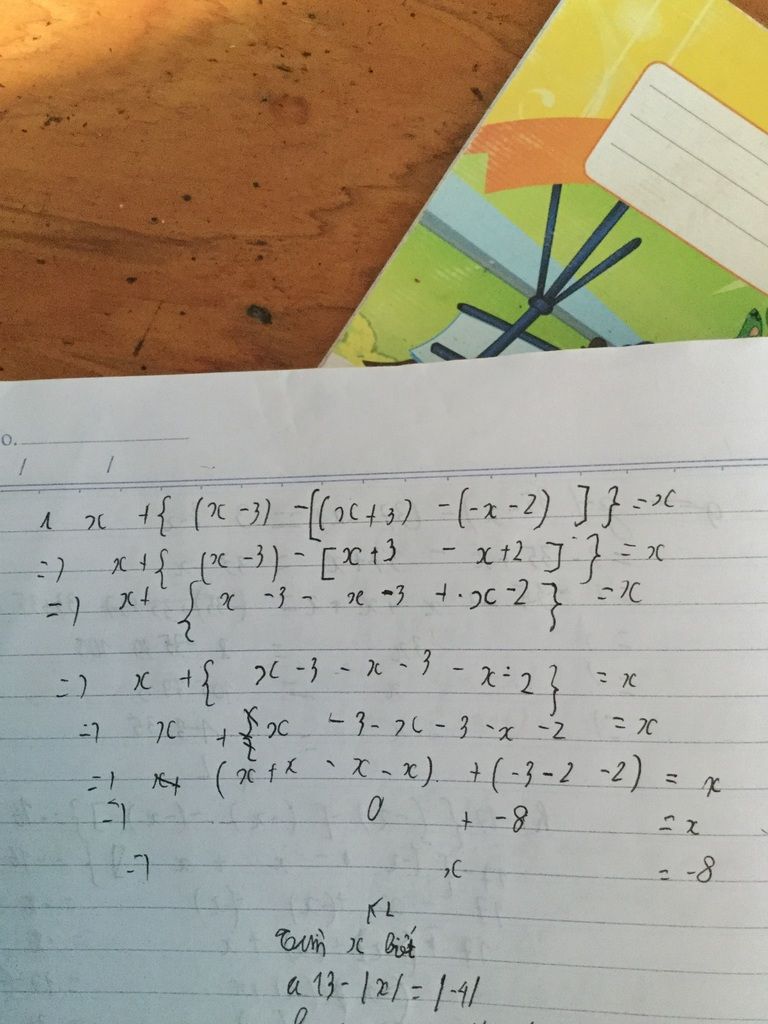 o.
/ /
1 x + { (x - 3) - [(x + 3) - (-x - 2) ] } = x
=> x + { (x - 3) - [x + 3 - x + 2 ] } = x
=> x + { x - 3 - x - 3 + x - 2 } = x
=> x + { x - 3 - x - 3 - x - 2 } = x
=> x + x - 3 - x - 3 - x - 2 = x
=> (x + x - x - x) + (-3 - 2 - 2) = x
=> 0 + -8 = x
=> x = -8
KL
Tìm x biết
a 13 - |x| = |-4|